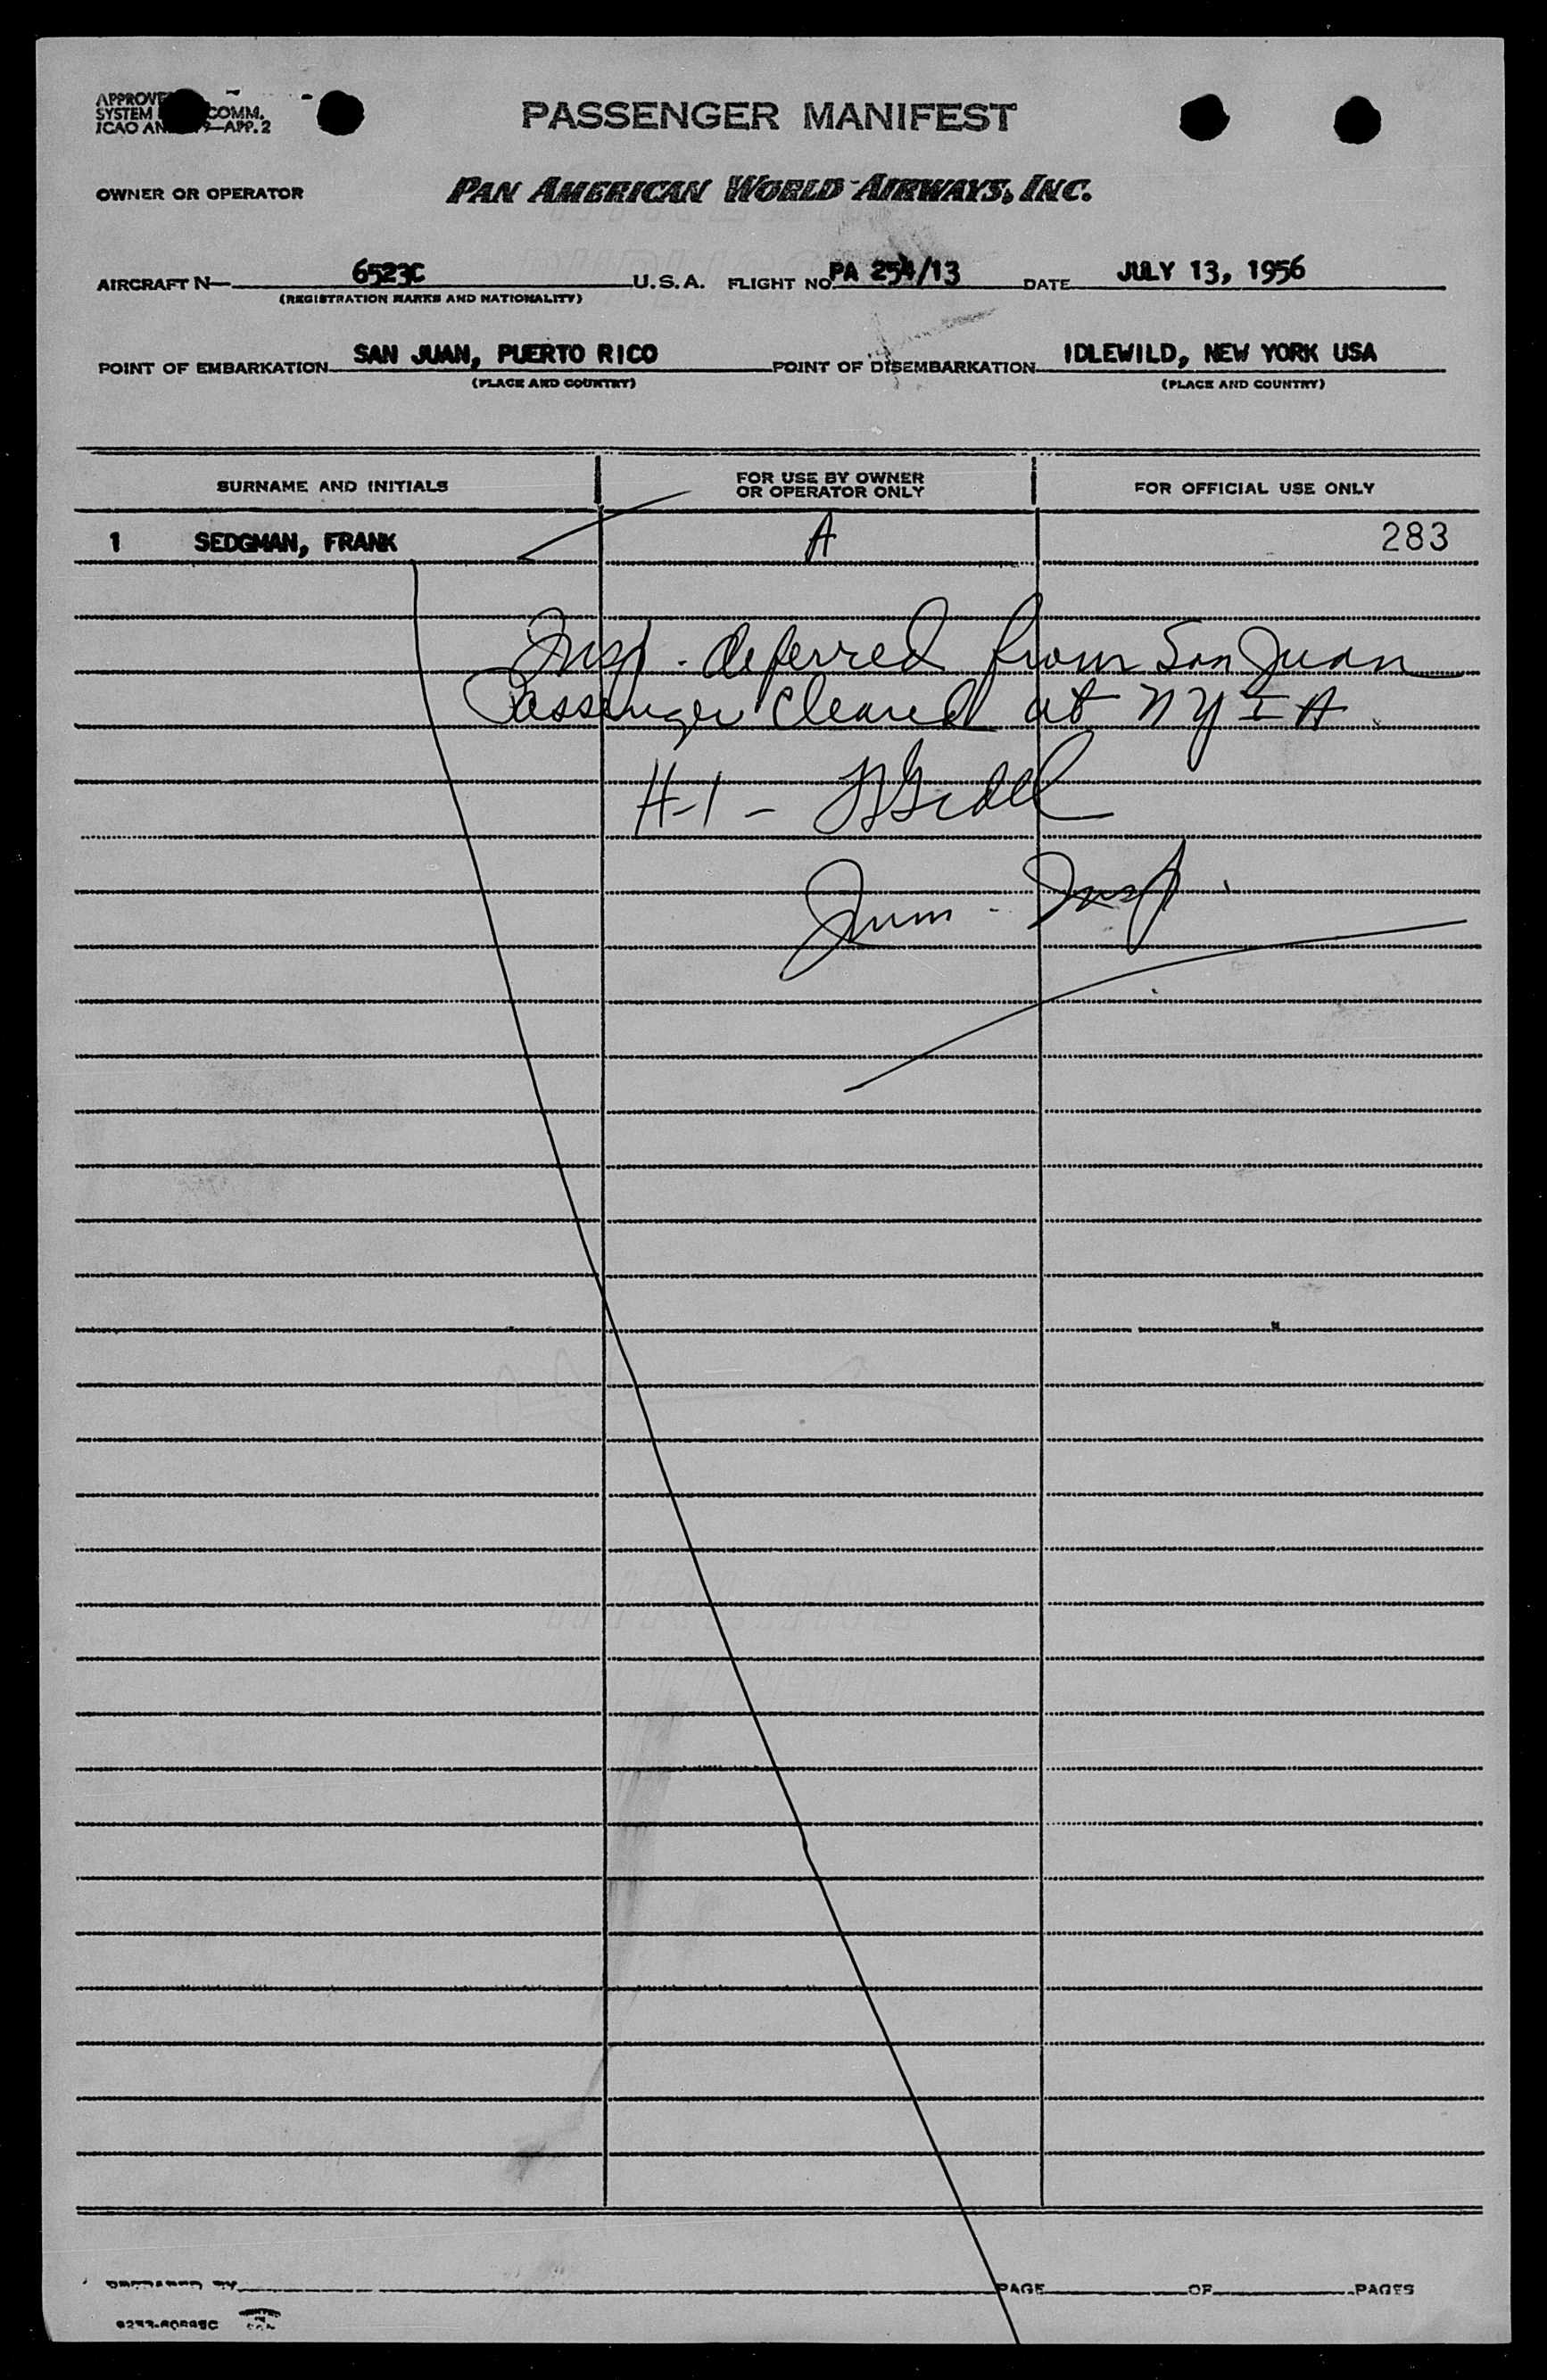 APPROVE
SYSTEM COMM.
ICAO AN 9—APP. 2
PASSENGER MANIFEST
OWNER OR OPERATOR PAN AMERICAN WORLD AIRWAYS, INC.
AIRCRAFT N— 6523C U.S.A. FLIGHT NO. PA 254/13 DATE JULY 13, 1956
(REGISTRATION MARKS AND NATIONALITY)
POINT OF EMBARKATION SAN JUAN, PUERTO RICO POINT OF DISEMBARKATION IDLEWILD, NEW YORK USA
(PLACE AND COUNTRY) (PLACE AND COUNTRY)
SURNAME AND INITIALS FOR USE BY OWNER OR OPERATOR ONLY FOR OFFICIAL USE ONLY
1 SEDGMAN, FRANK A 283
Insp. deferred from San Juan
Passenger cleared at NYIA
H-1 -
Imm. Insp.
PREPARED BY PAGE OF PAGES